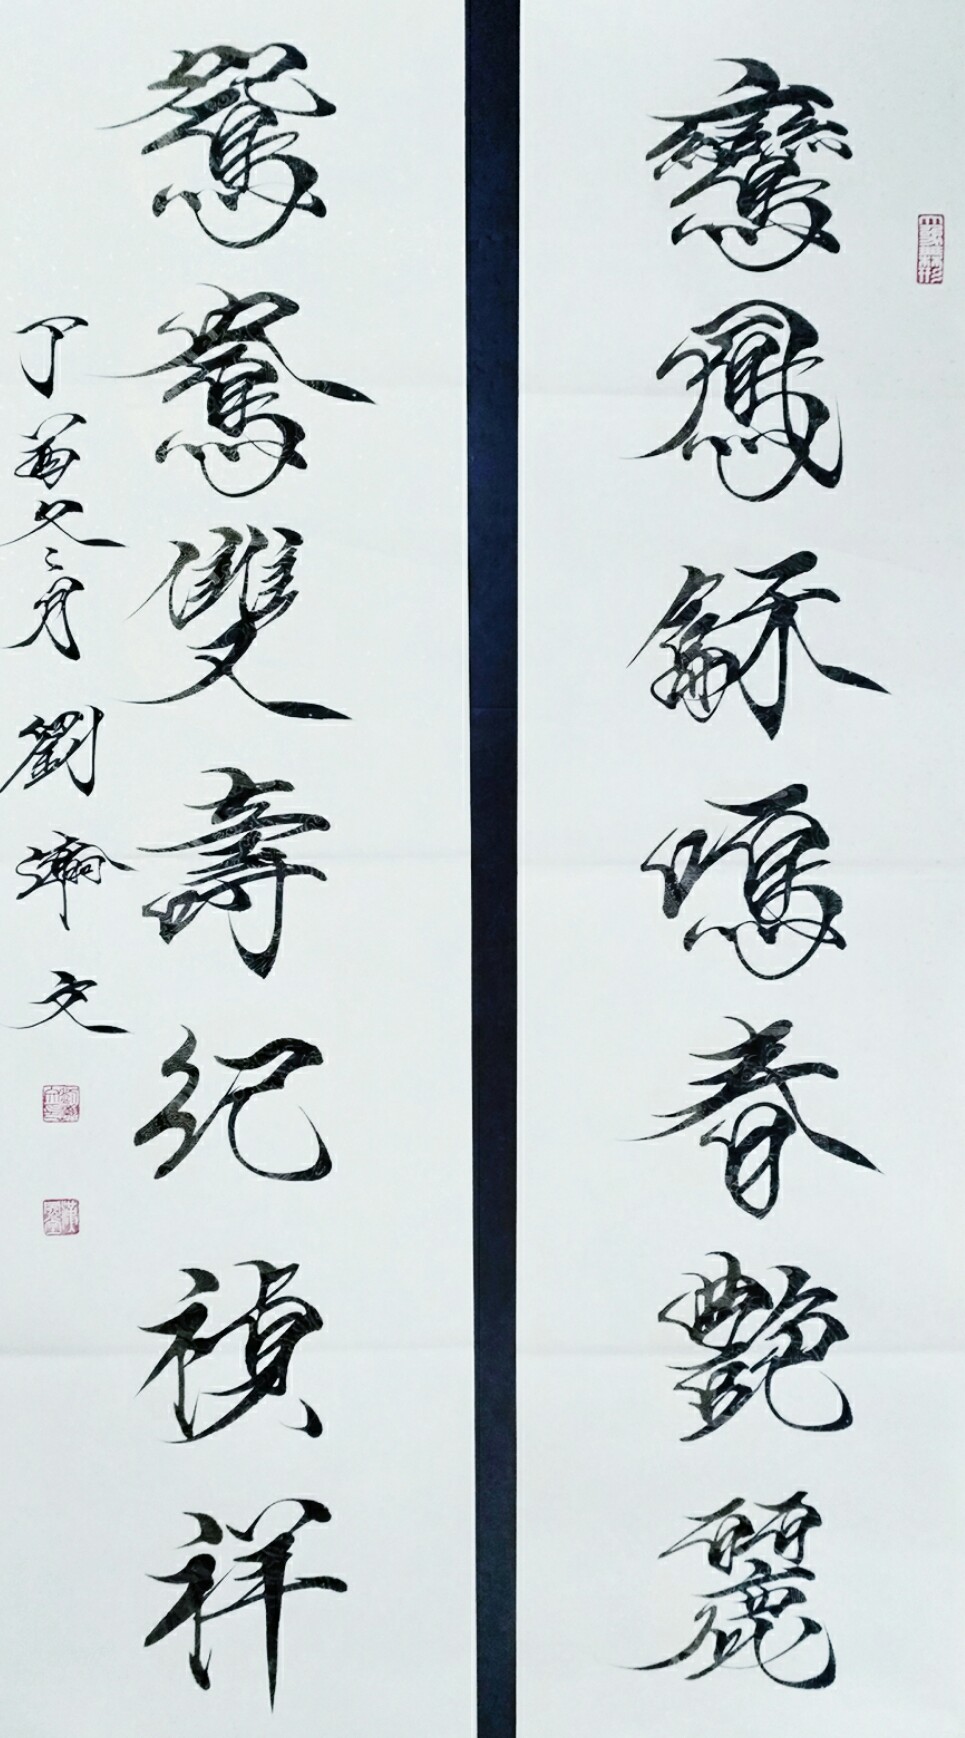 鸞鳳龢鳴春艷麗
鴛鴦雙壽紀禎祥
丁酉冬月 劉 文